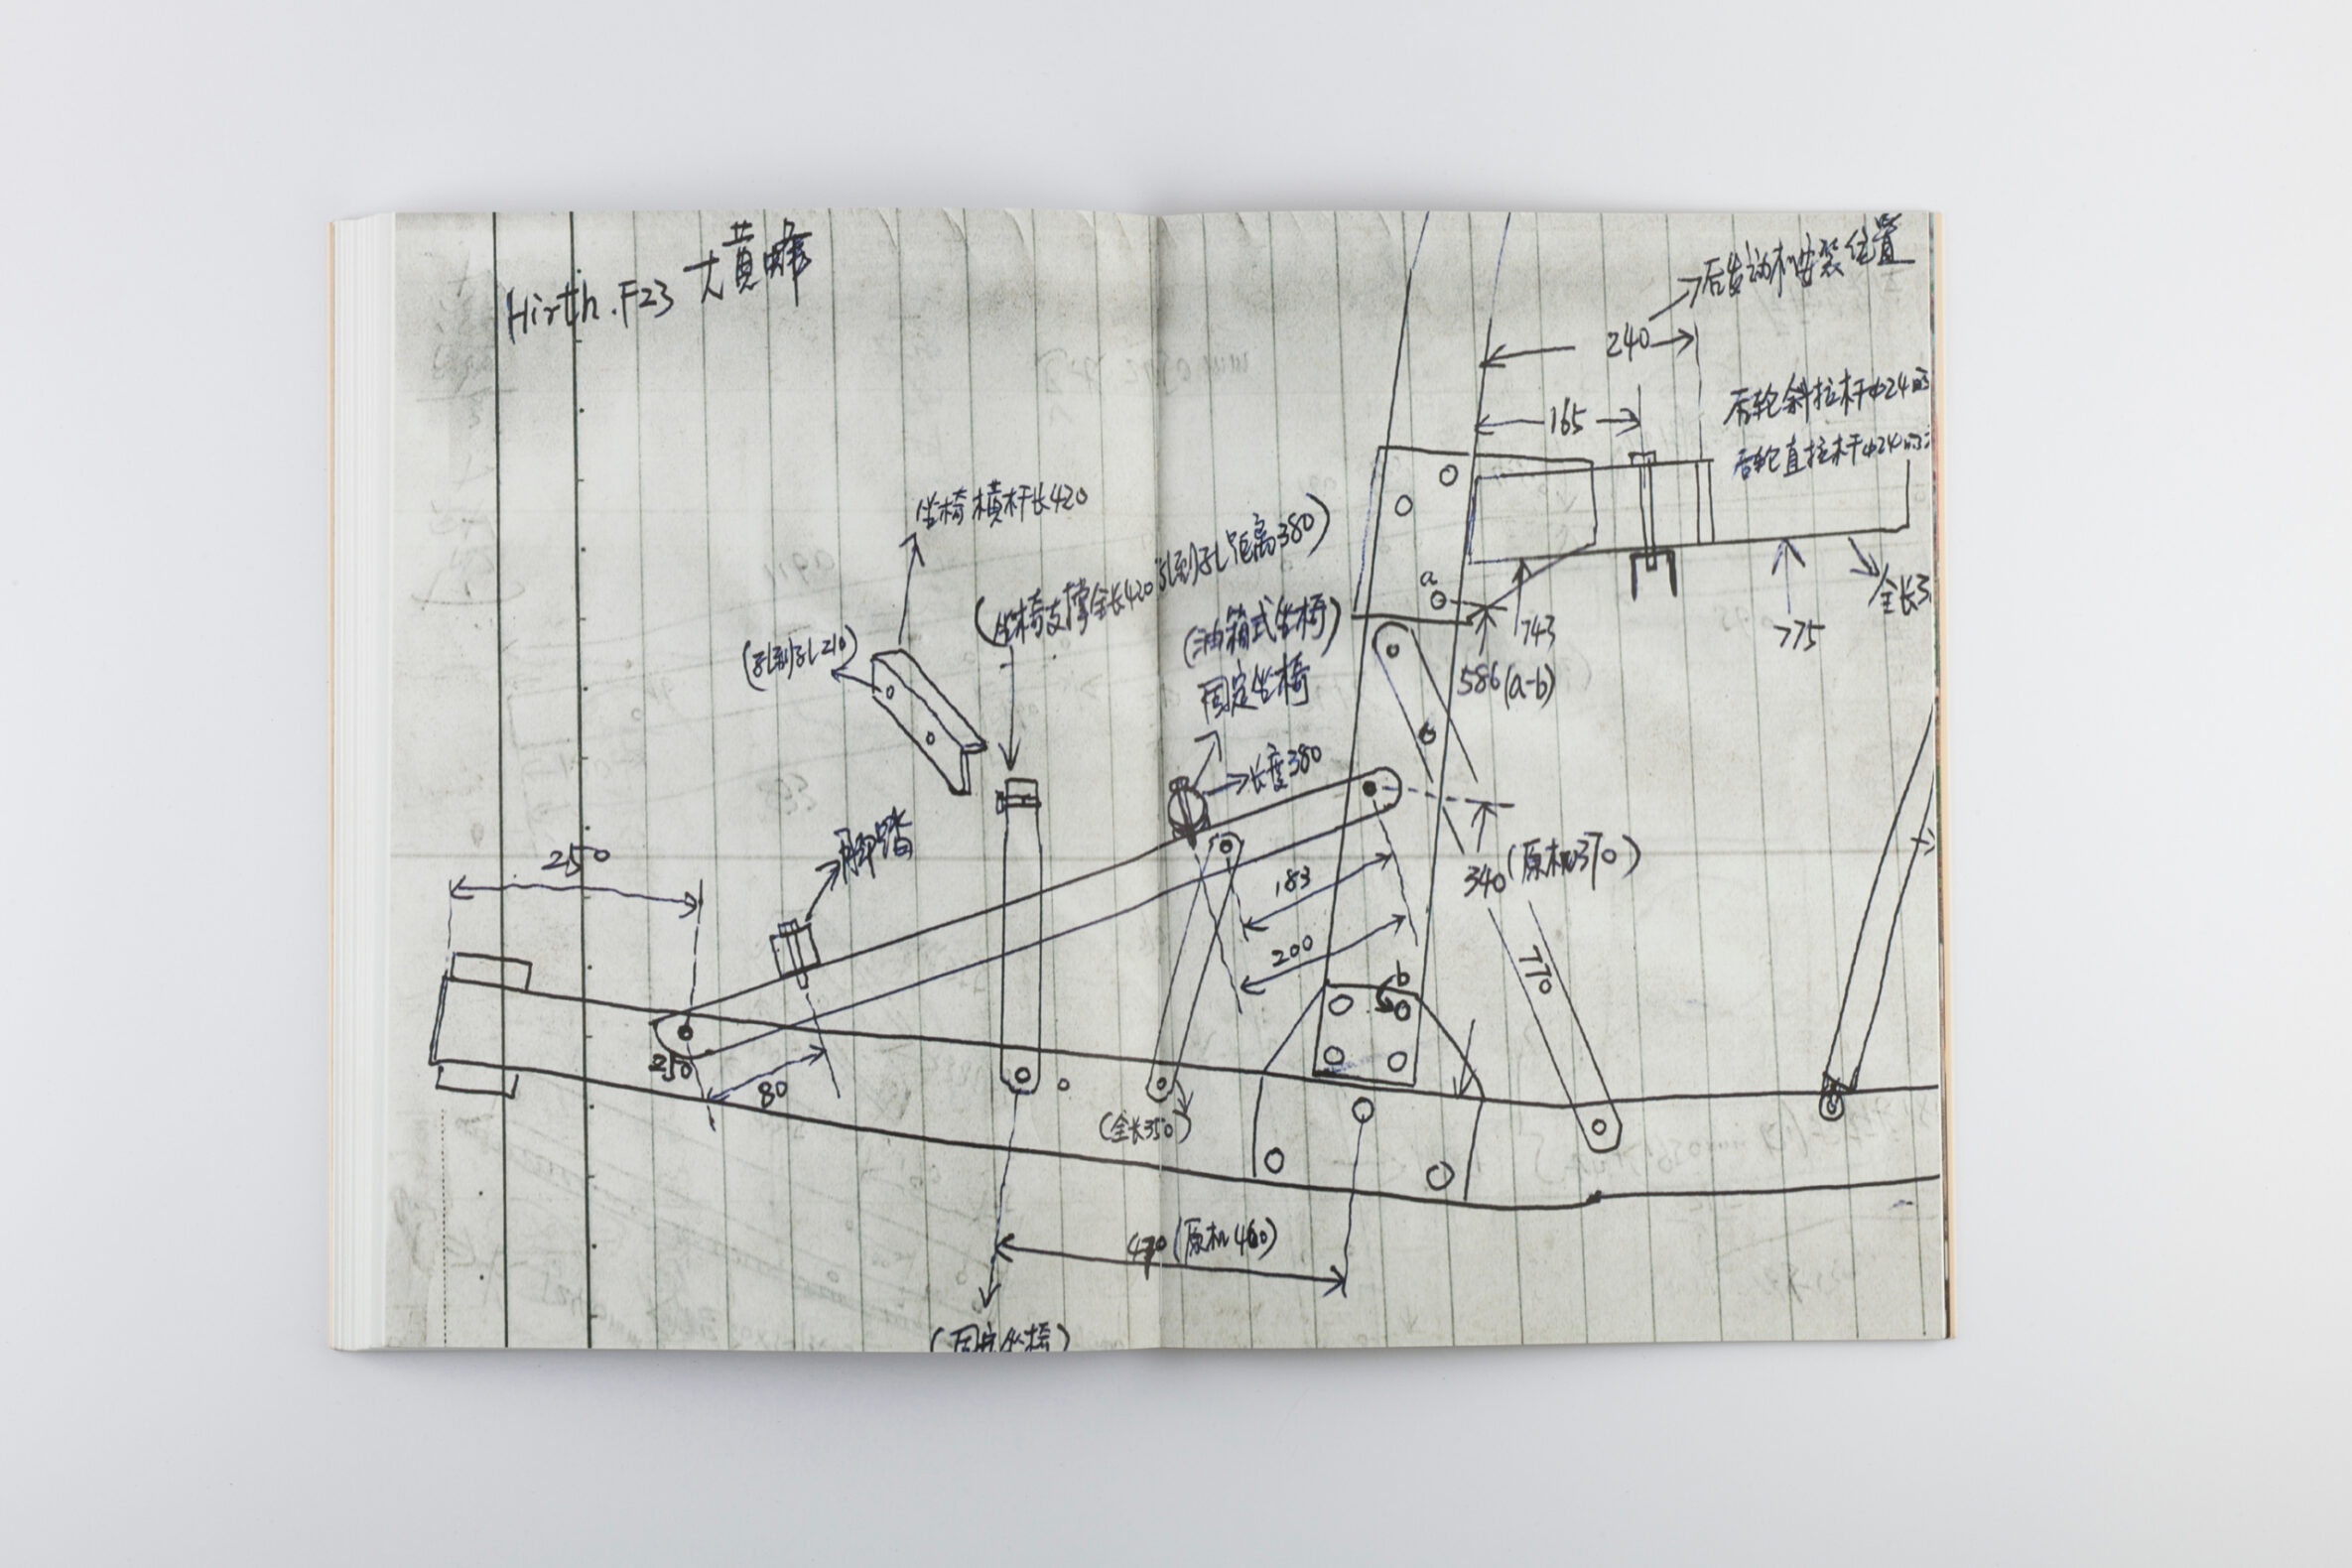 Hirth.F23 大黄蜂
后发动机安装位置
240
165
后轮斜拉杆φ24的
后轮直拉杆φ24的
坐椅横杆长420
(坐椅支撑全长420 孔到孔距离380)
(油箱式坐椅)
固定坐椅
(孔到孔210)
a
743
775
全长3
586(a-b)
b
长度380
脚踏
250
183
340(原机370)
200
770
b
250
80
(全长350)
470(原机460)
(固定坐椅)